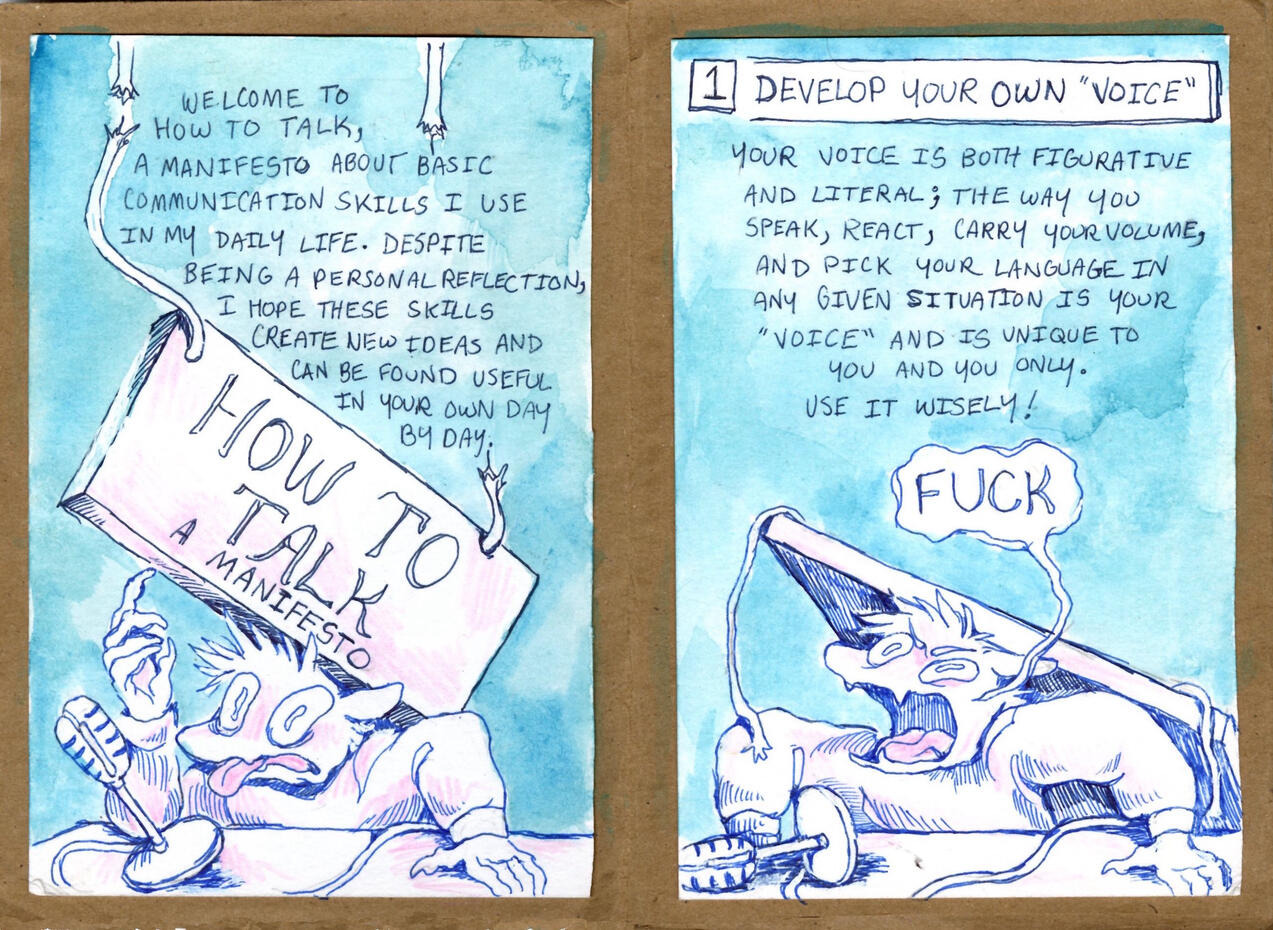 WELCOME TO
HOW TO TALK,
A MANIFESTO ABOUT BASIC
COMMUNICATION SKILLS I USE
IN MY DAILY LIFE. DESPITE
BEING A PERSONAL REFLECTION,
I HOPE THESE SKILLS
CREATE NEW IDEAS AND
CAN BE FOUND USEFUL
IN YOUR OWN DAY
BY DAY.
HOW TO
TALK
A MANIFESTO
1 DEVELOP YOUR OWN "VOICE"
YOUR VOICE IS BOTH FIGURATIVE
AND LITERAL; THE WAY YOU
SPEAK, REACT, CARRY YOUR VOLUME,
AND PICK YOUR LANGUAGE IN
ANY GIVEN SITUATION IS YOUR
"VOICE" AND IS UNIQUE TO
YOU AND YOU ONLY.
USE IT WISELY!
FUCK